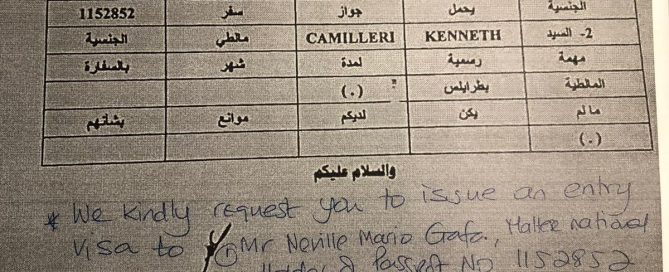 الجنسية يحمل جواز سفر 1152852
2- السيد KENNETH CAMILLERI مالطي الجنسية
مهمة رسمية لمدة شهر بالسفارة
المالطية بطرابلس (.)
مالم يكن لديكم موانع بشأنهم
(.)
والسلام عليكم
* We kindly request you to issue an entry
visa to ① Mr Neville Mario Gafa, Maltese national
Holder of Passport No 1152852